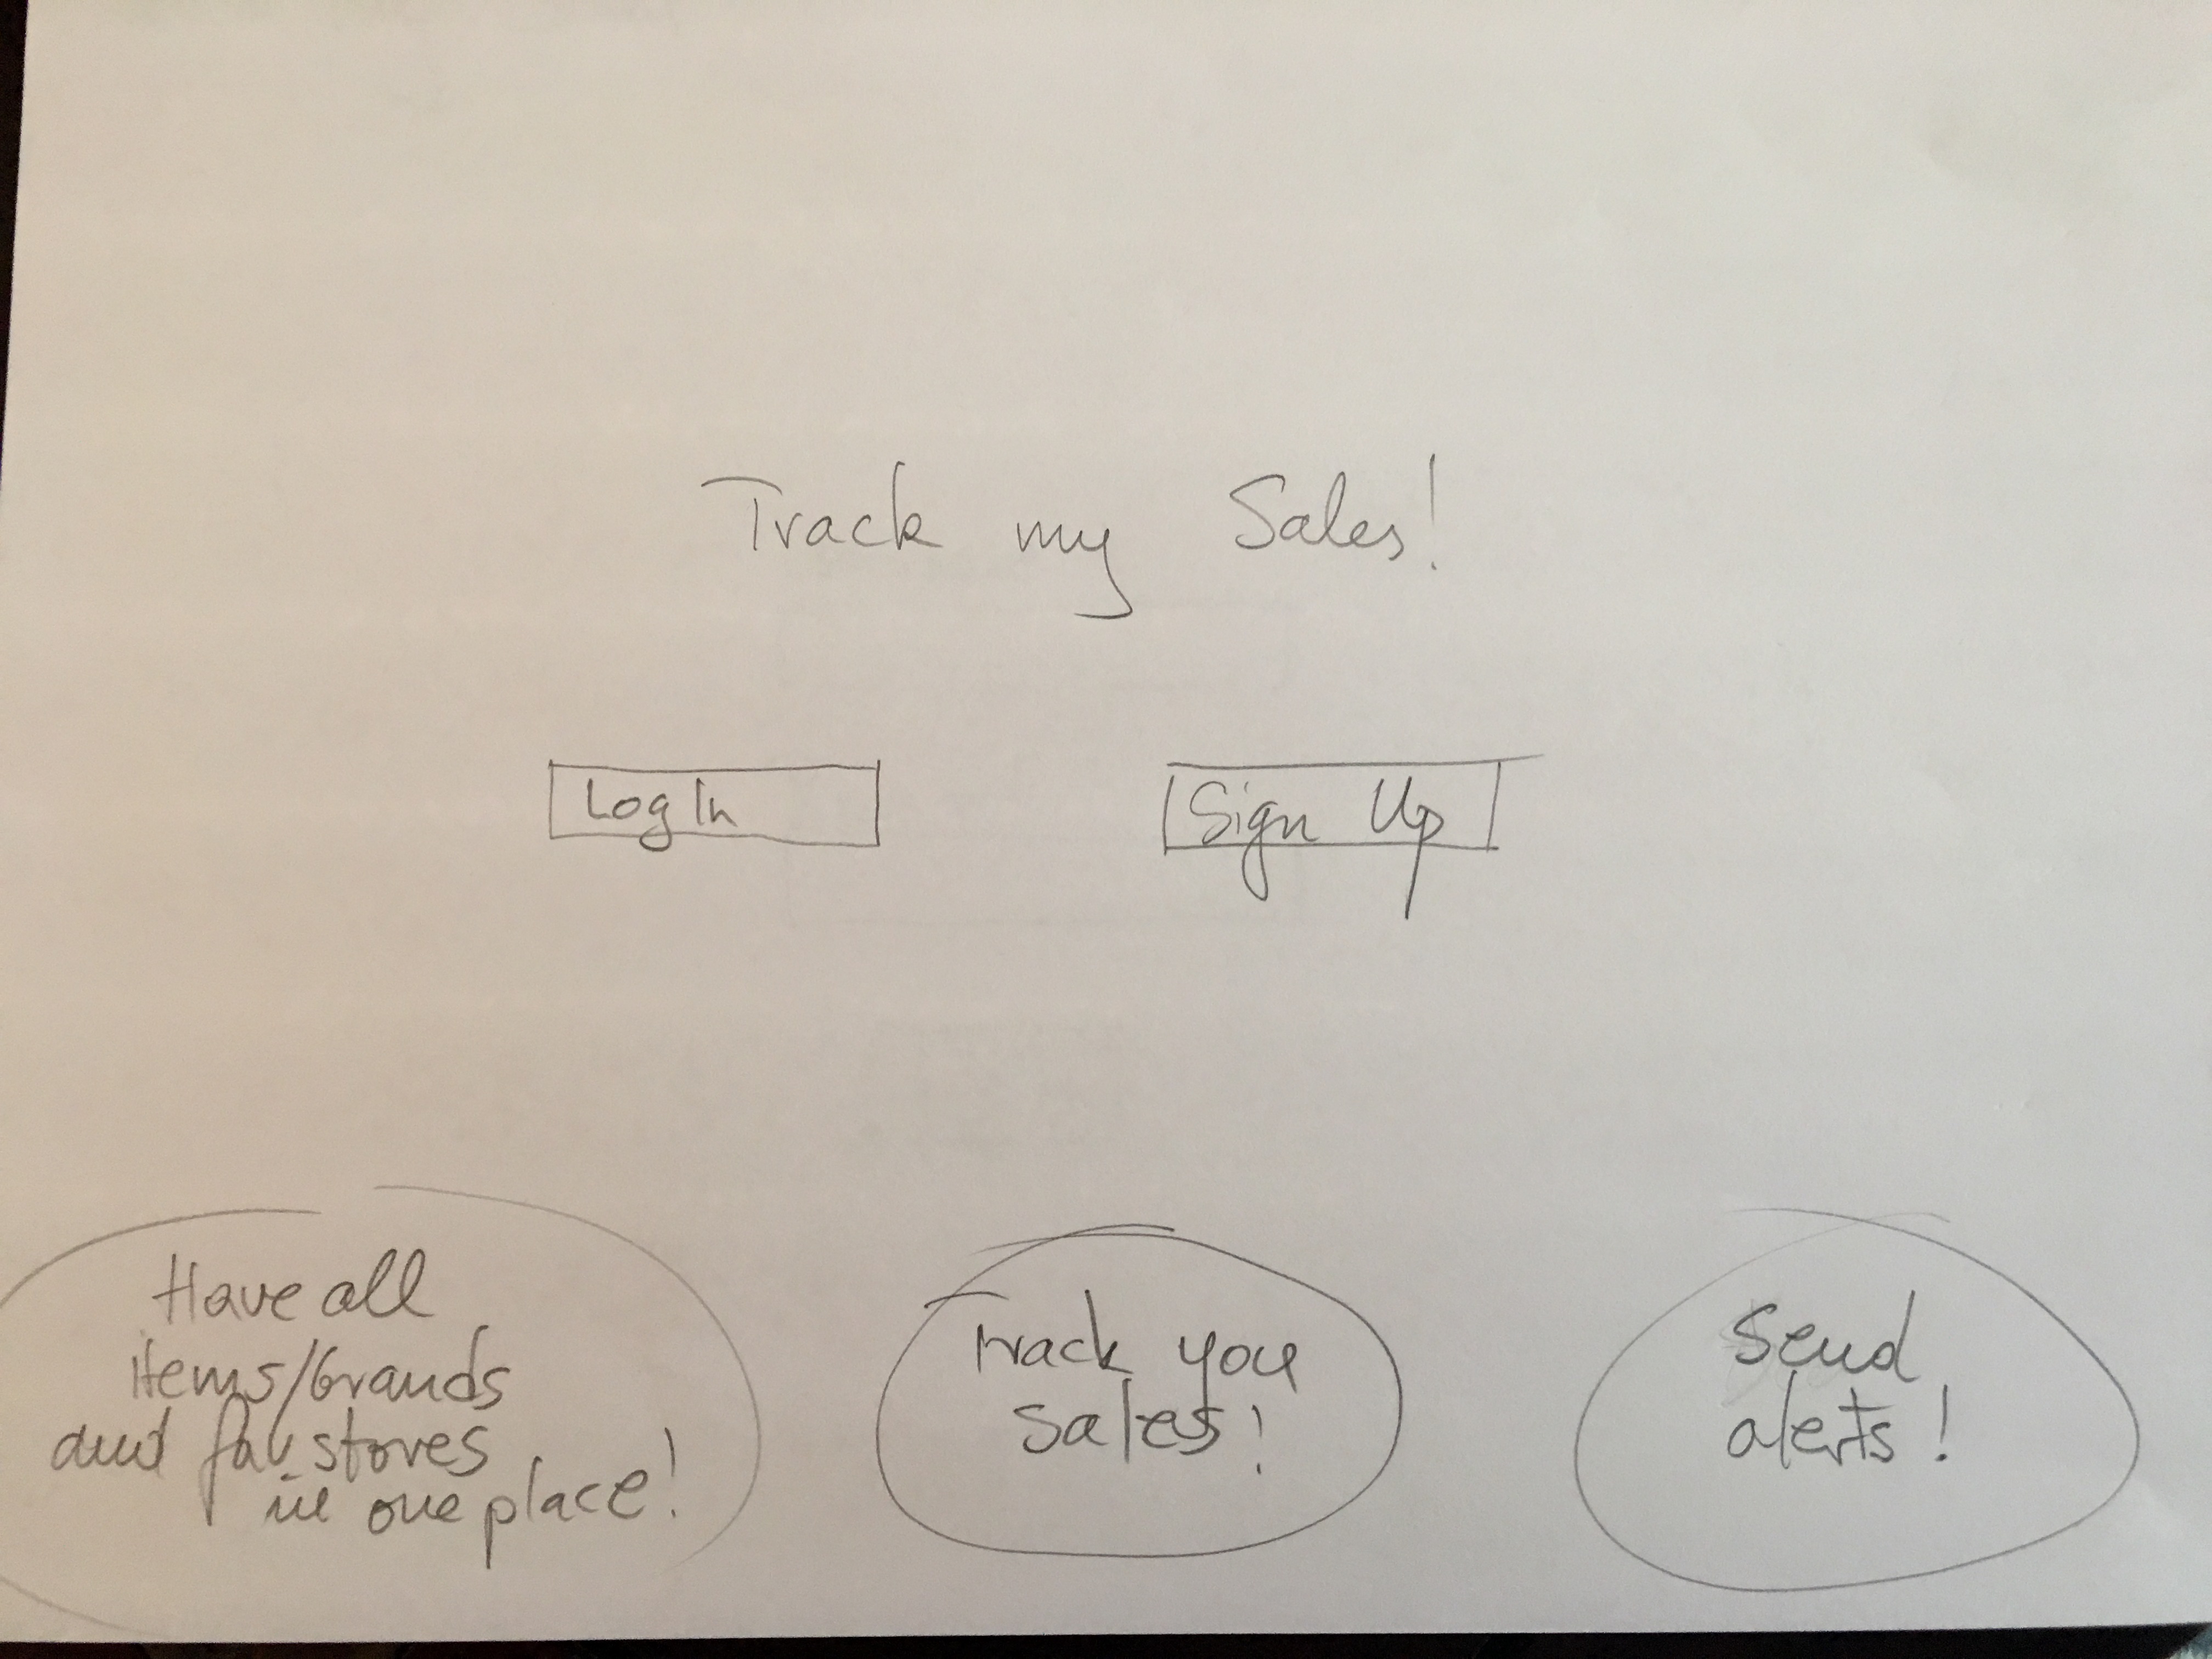 Track my Sales!
Log In
Sign Up
Have all
items/brands
and fav stores
in one place!
Track you
sales!
Send
alerts!